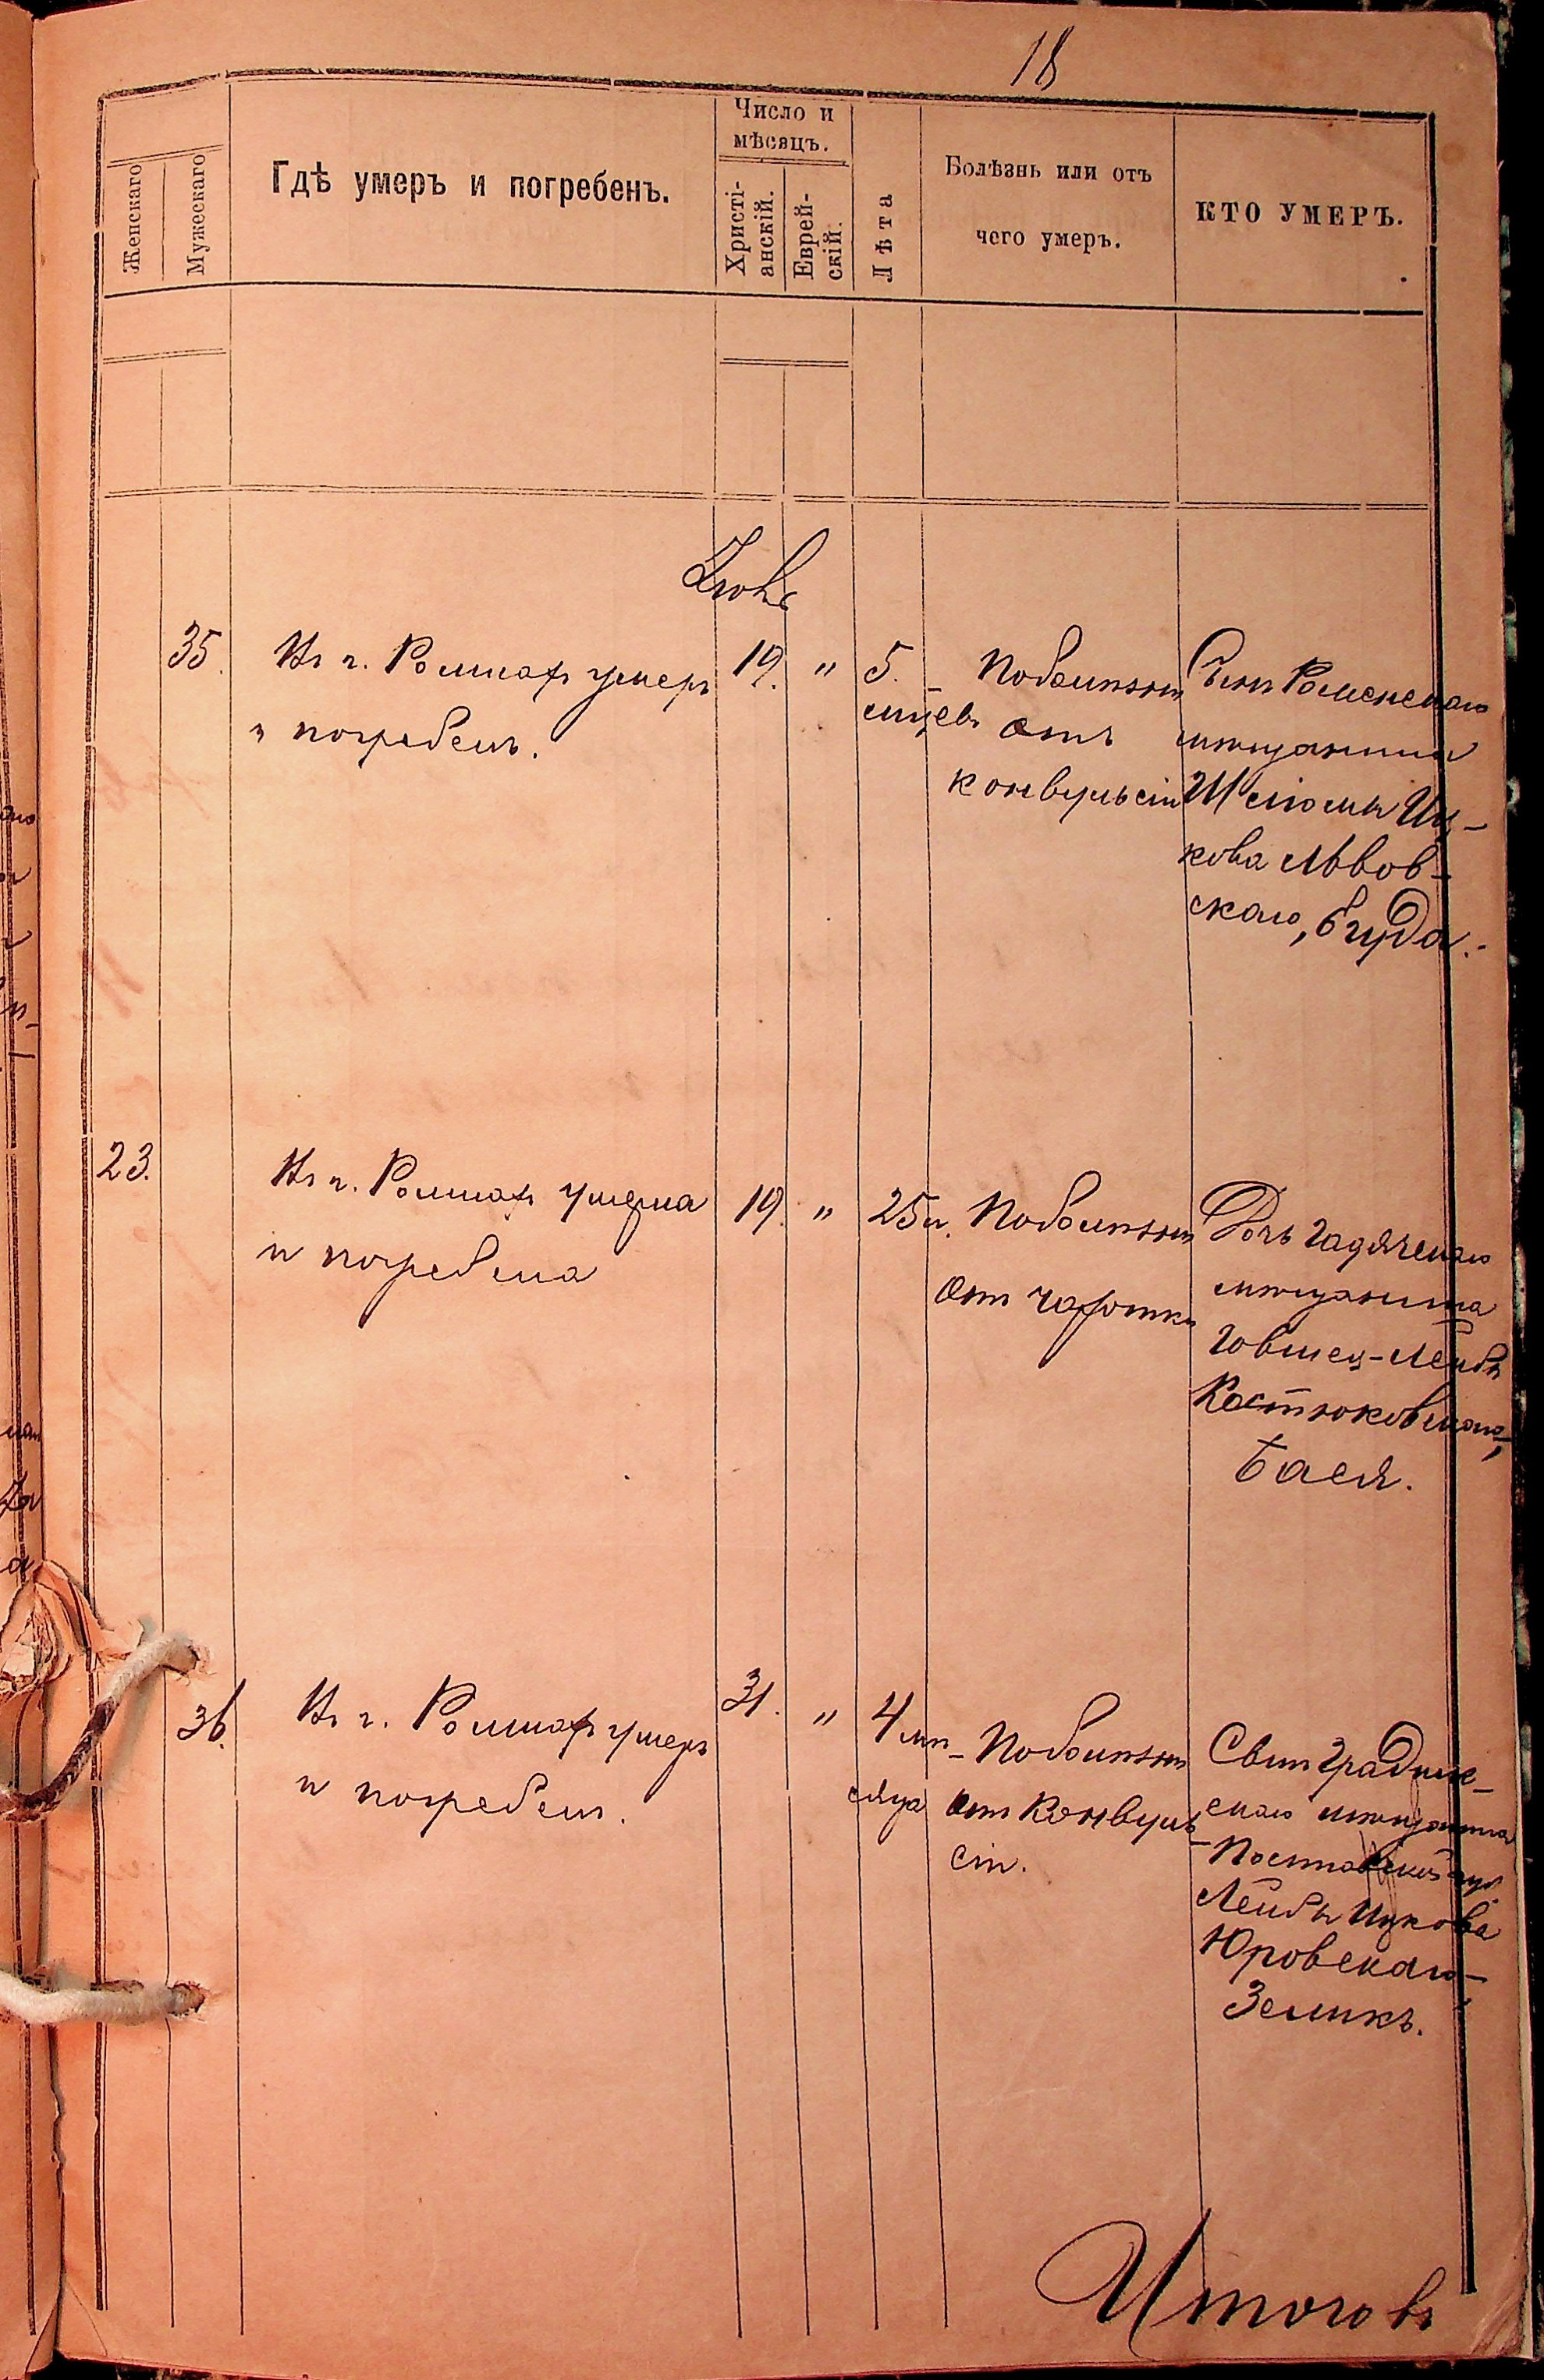 18
Женскаго
Мужескаго
Гдѣ умеръ и погребенъ.
Число и
мѣсяцъ.
Христі-
анскій.
Еврей-
скій.
Лѣта
Болѣзнь или отъ
чего умеръ.
КТО УМЕРЪ.
35.
Въ г. Ромнахъ умеръ
и погребенъ.
19. " 5.
мѣсяцевъ
По болѣзни
отъ
конвульсіи
Сынъ Роменскаго
мѣщанина
Шліомы Иц-
кова Львов-
скаго,
23.
Въ г. Ромнахъ умерла
и погребена
19. " 25 л.
По болѣзни
отъ чахотки
Дочь Гадячскаго
мѣщанина
Говшец-Лейбы
Костюковскаго,
Бася.
36.
Въ г. Ромнахъ умеръ
и погребенъ.
31. " 4 мѣ-
сяца
По болѣзни
отъ конвуль-
сіи.
Сынъ Градиж-
скаго мѣщанина
Полтавской губ.
Лейбы Ицкова
Юровскаго,
Зеликъ.
Итого въ